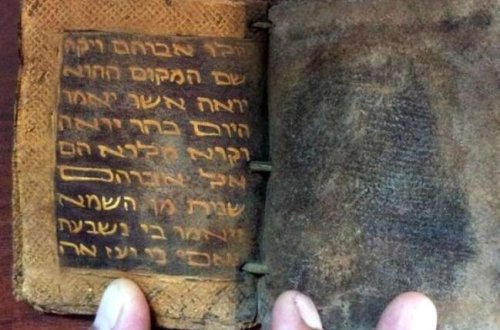 אברהם ויקה
שם המקום ההוא
יראה אשר יאמר
היום בהר יראה
וקרא הם
אל אברהם
שנית מן השמא
ויאמר בי נשבעת
כי יעז אה